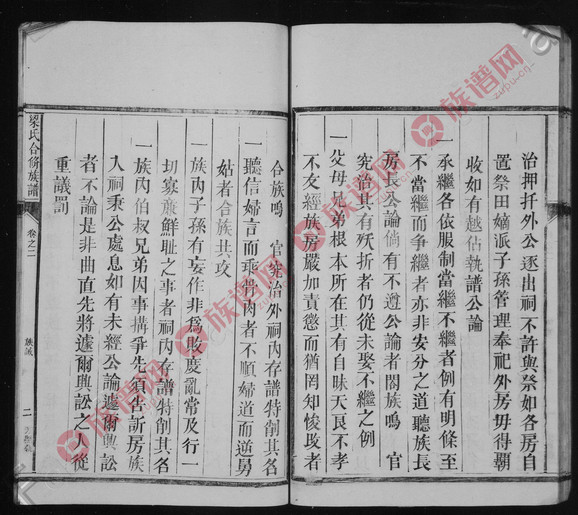 治押托外公逐出祠不許與祭如各房自
置祭田嫡派子孫管理奉祀外房毋得霸
收如有越佔執譜公論
一承繼各依服制當繼不繼者例有明條至
不當繼而爭繼者亦非安分之道聽族長
房長公論倘有不遵公論者闔族鳴 官
究治其有殀折者仍從未娶不繼之例
一父母兄弟根本所在其有自昧天良不孝
不友經族房嚴加責懲而猶罔知悛改者
合族鳴 官究治外祠內存譜特削其名
一聽信婦言而乖骨肉者不順婦道而逆舅
姑者合族共攻
一族內子孫有妄作非為敗慶亂常及行一
切寡亷鮮耻之事者祠內存譜特削其名
一族內伯叔兄弟因事搆爭先須告訴房族
入祠秉公處息如有未經公論遽爾興訟
者不論是非曲直先將遽爾興訟之人從
重議罰
梁氏合修族譜
卷之二
族誡
二
族谱网
zupu.cn